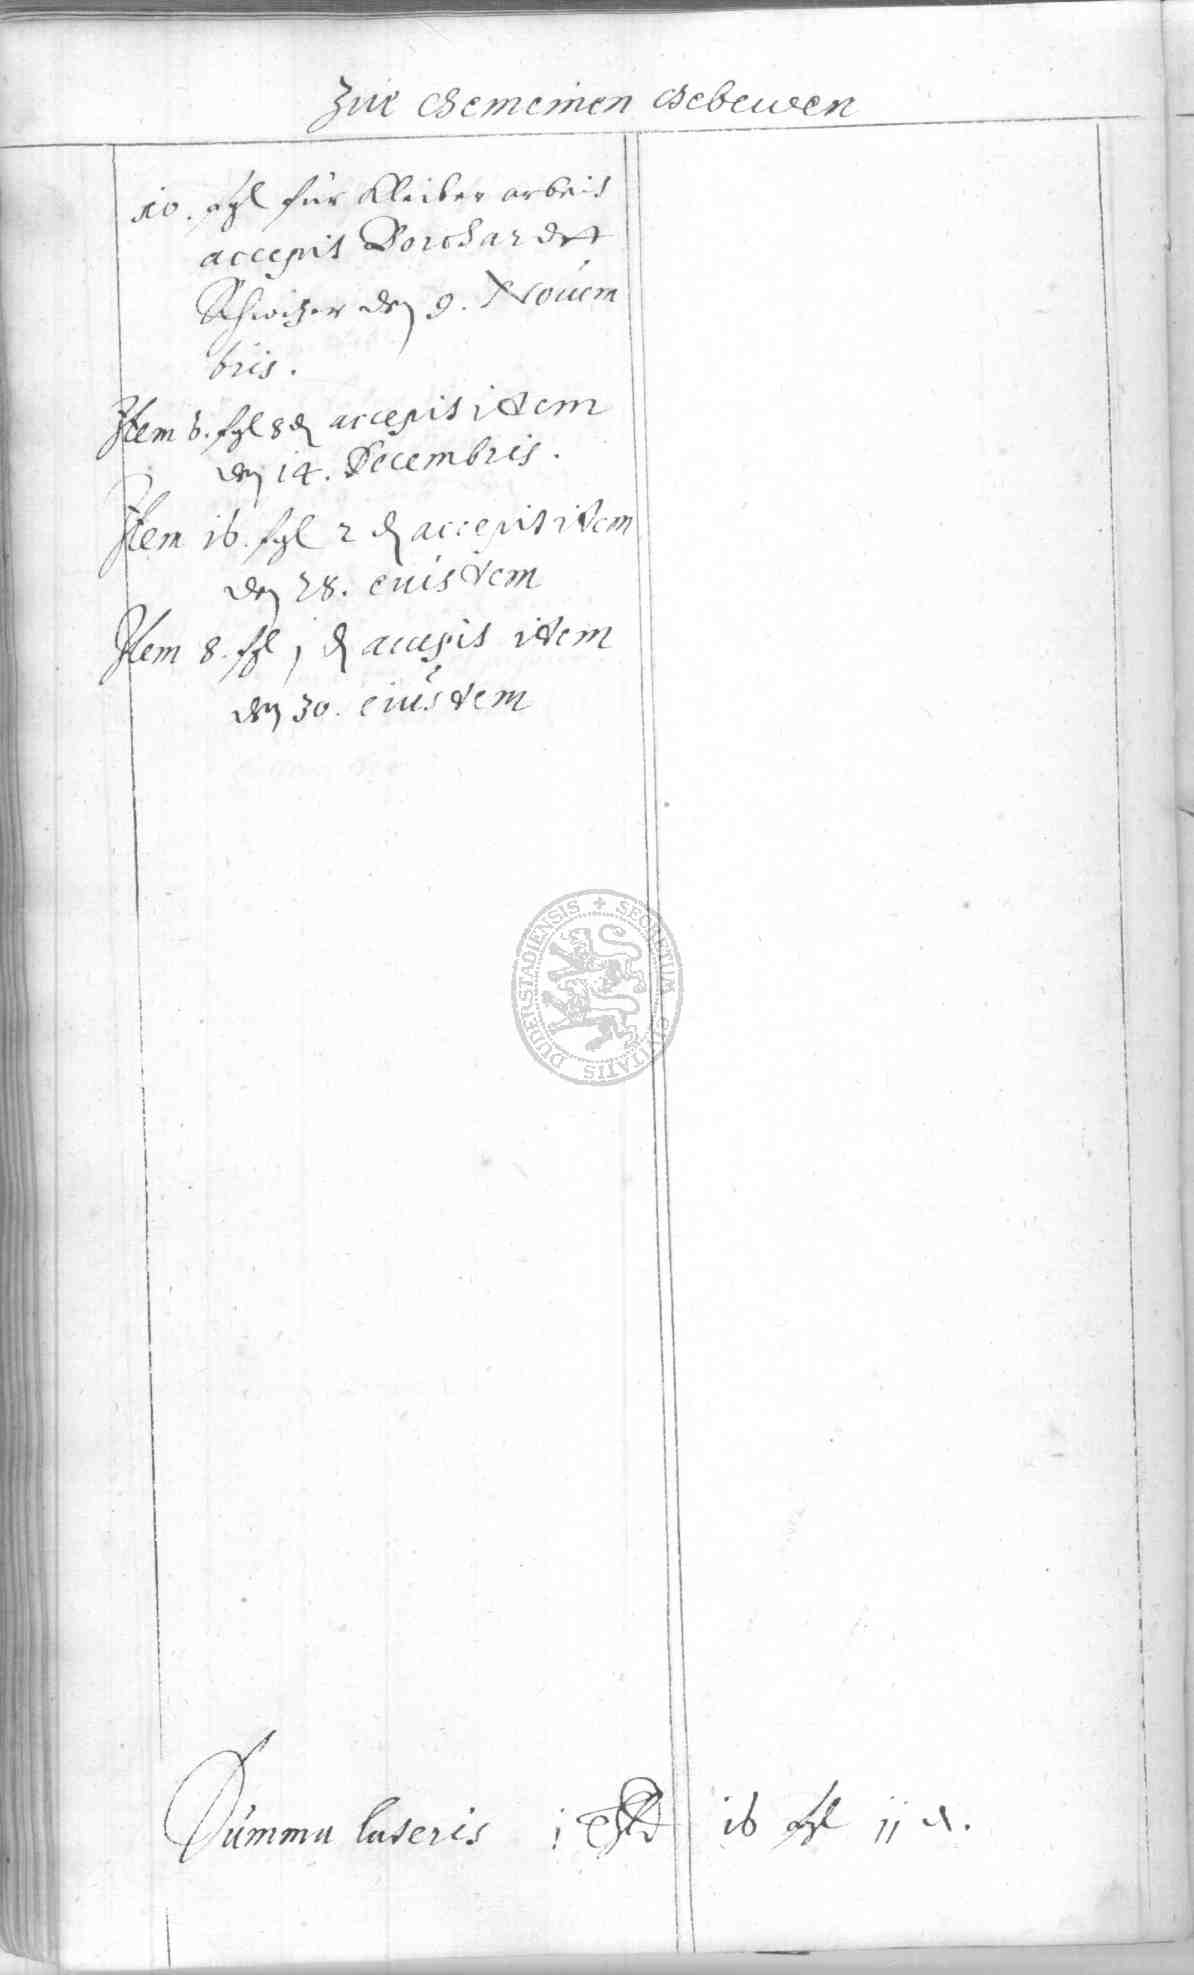 Zue Gemeinen Gebewen
10. ßgl für Kleiber arbeit
accepit Borchardtt
Schwitzer den 9. Novem
bris.
Item 6. ßgl 8 ₰ accepit idem
den 14. Decembris.
Item 16. ßgl 2 ₰ accepit idem
den 28. euisdem
Item 8. ßgl j ₰ accepit idem
den 30. eiusdem
SECRETUM CIVITATIS DUDERSTADIENSIS
Summa lateris j 16 ßgl jj ₰.